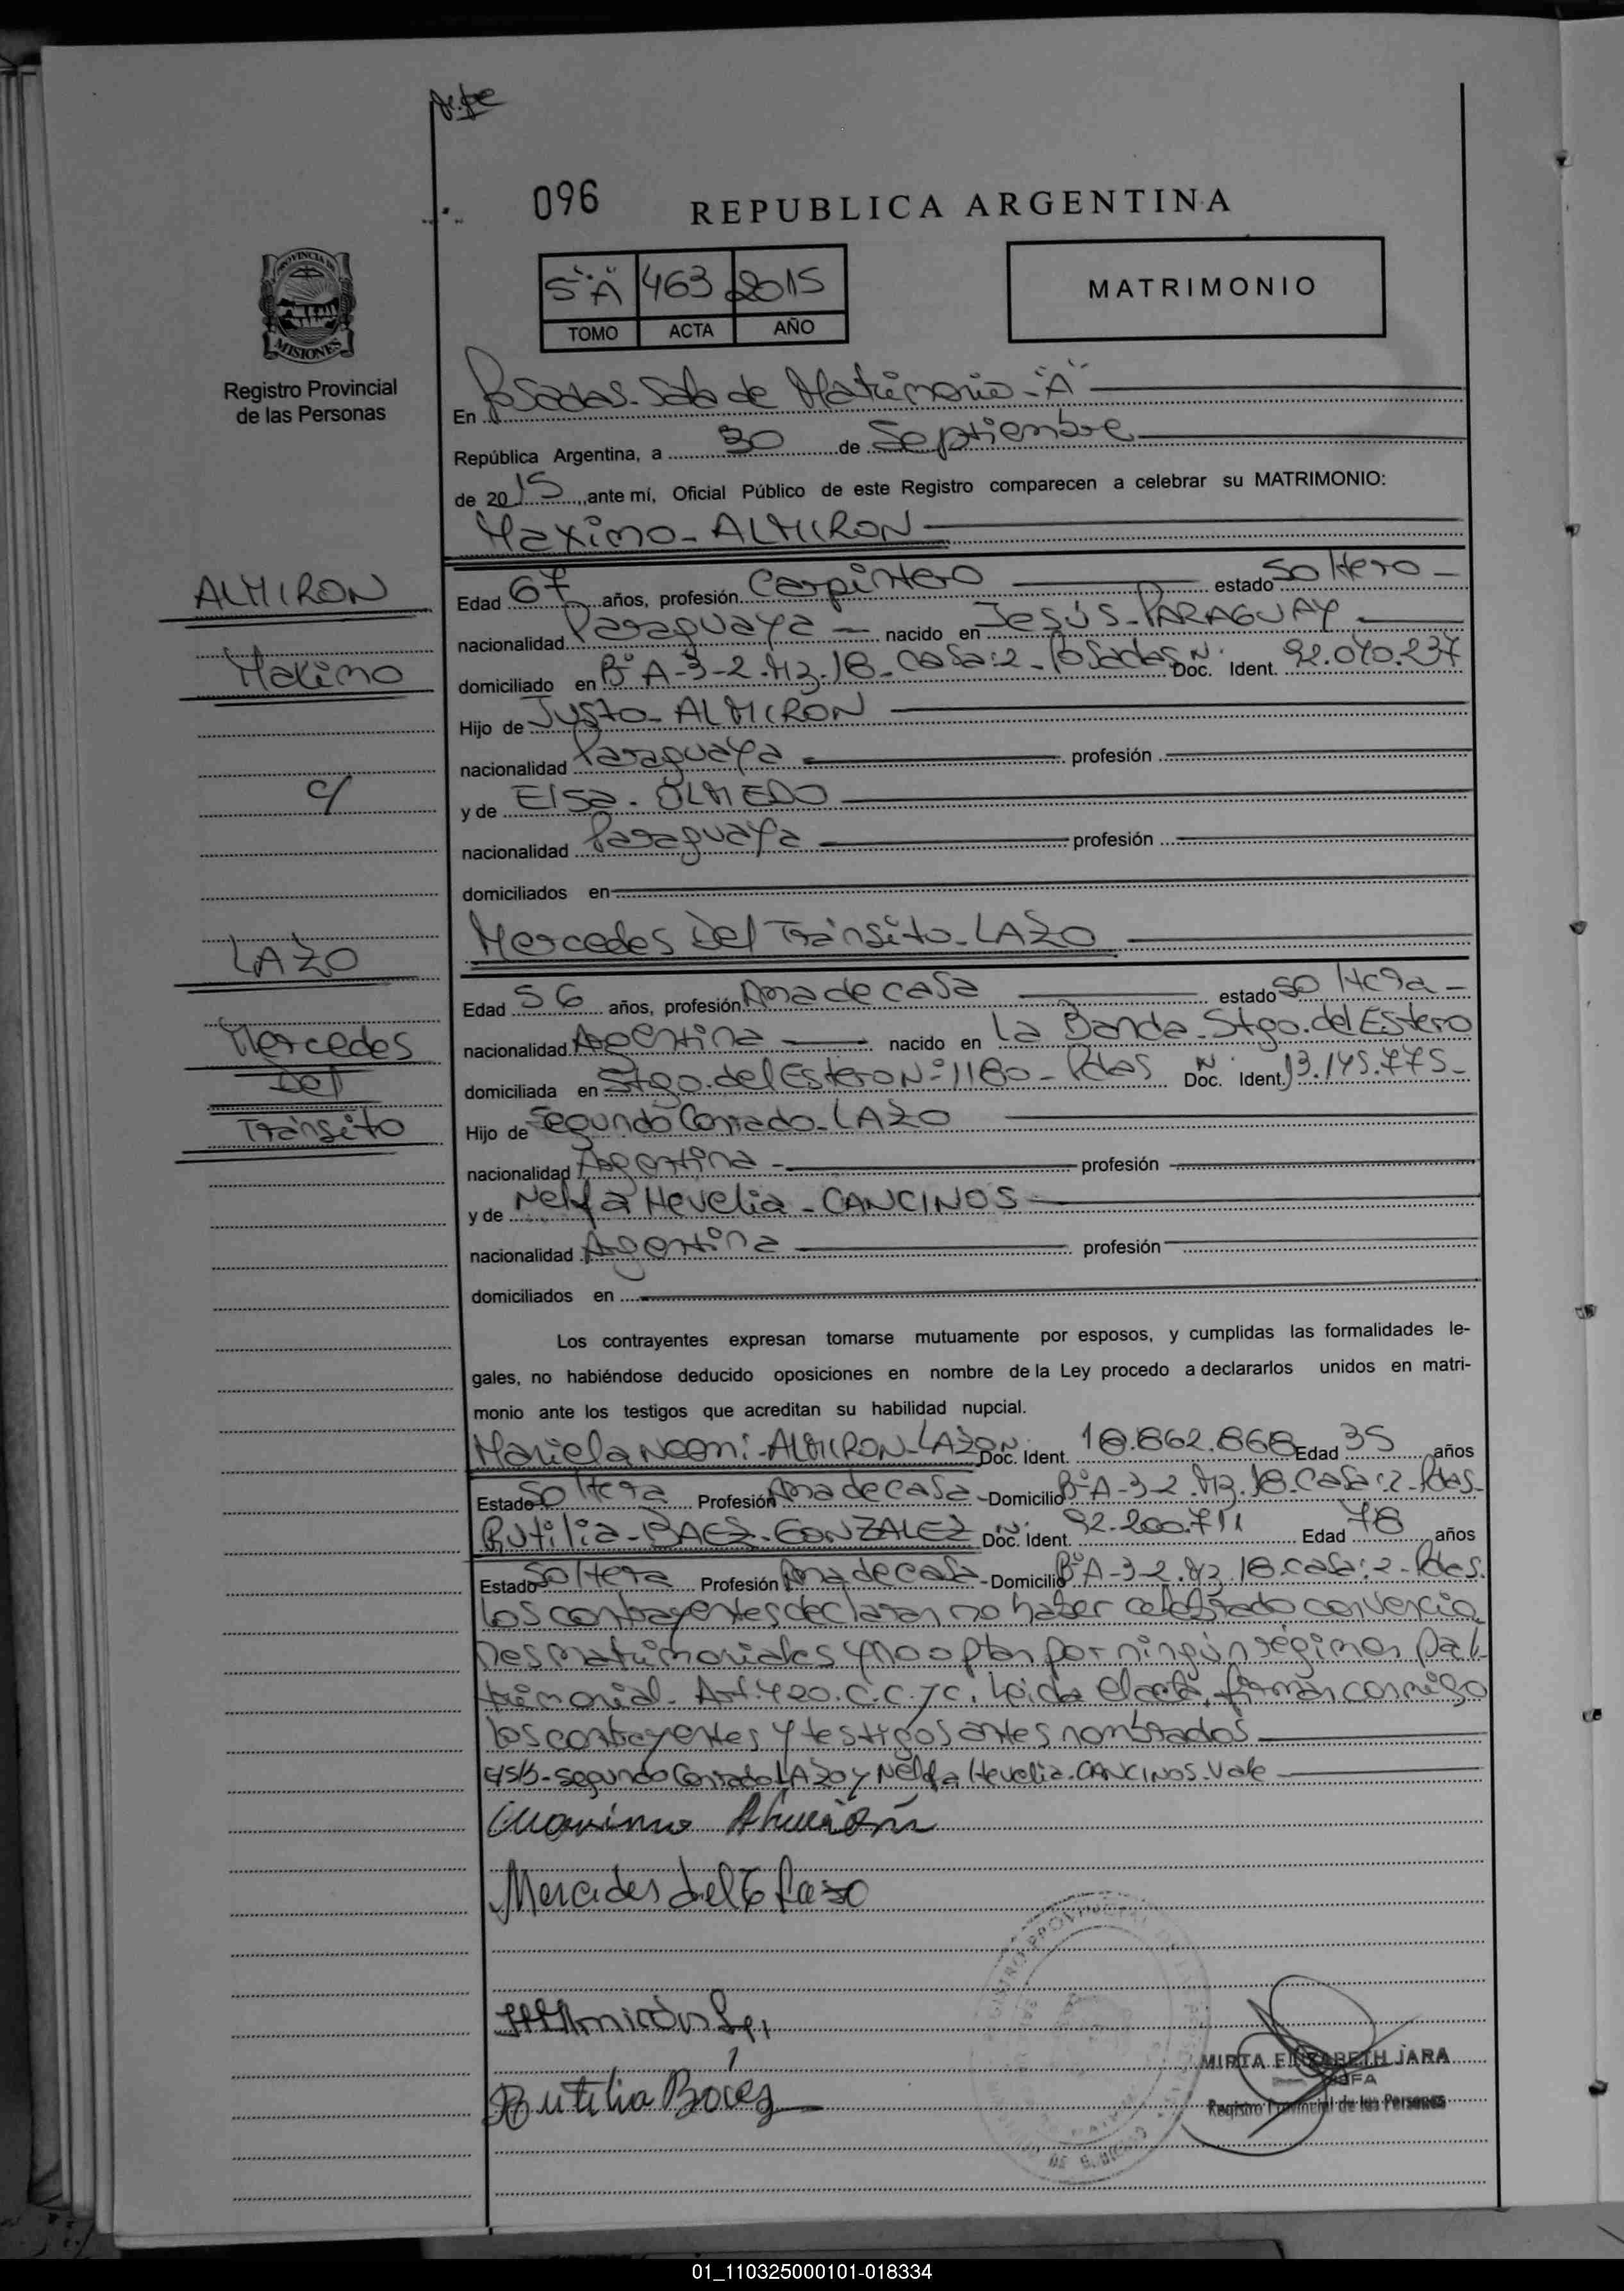 096
REPUBLICA ARGENTINA
PROVINCIA DE
MISIONES
Registro Provincial
de las Personas
5º "A" 463 2015
TOMO ACTA AÑO
MATRIMONIO
En Posadas-Sala de Matrimonio-"A"
República Argentina, a 30 de Septiembre
de 2015, ante mí, Oficial Público de este Registro comparecen a celebrar su MATRIMONIO:
Maximo-ALMIRON
ALMIRON
Maximo
c/
LAZO
Mercedes
Del
Tránsito
Edad 67 años, profesión Carpintero estado soltero-
nacionalidad Paraguaya nacido en Jesús-PARAGUAY
domiciliado en Bº A-3-2.Mz.18-Casa:2-Posadas Doc. Ident. Nº 92.040.237
Hijo de Justo-ALMIRON
nacionalidad Paraguaya profesión
y de Elsa-OLMEDO
nacionalidad Paraguaya profesión
domiciliados en
Mercedes Del Tránsito-LAZO
Edad 56 años, profesión Ama de casa estado soltera-
nacionalidad Argentina nacido en La Banda-Stgo. del Estero
domiciliada en Stgo. del Estero Nº 1180-Pdas Doc. Ident. Nº 13.145.775-
Hijo de Segundo Conrado-LAZO
nacionalidad Argentina profesión
y de Hevelia-CANCINOS
nacionalidad Argentina profesión
domiciliados en
Los contrayentes expresan tomarse mutuamente por esposos, y cumplidas las formalidades le-
gales, no habiéndose deducido oposiciones en nombre de la Ley procedo a declararlos unidos en matri-
monio ante los testigos que acreditan su habilidad nupcial.
Mariela Noemi-ALMIRON-LAZO Doc. Ident. Nº 18.862.868 Edad 35 años
Estado soltera Profesión Ama de casa-Domicilio Bº A-3-2.Mz.18.Casa:2-Pdas-
Rutilia-BAEZ-GONZALEZ Doc. Ident. Nº 92.200.711 Edad 78 años
Estado soltera Profesión Ama de casa-Domicilio Bº A-3-2.Mz.18.Casa:2-Pdas.
Los contrayentes declaran no haber celebrado convencio-
nes matrimoniales y no optan por ningún régimen pa-
trimonial. Art. 420. C.C. y C. Leida el acta, firman conmigo
los contrayentes y testigos antes nombrados
Segundo Conrado LAZO y Hevelia-CANCINOS-Vale
Maximo Almirón
Mercedes del T Lazo
Rutilia Baez
MIRTA ELIZABETH JARA
JEFA
Registro Provincial de las Personas
01_110325000101-018334